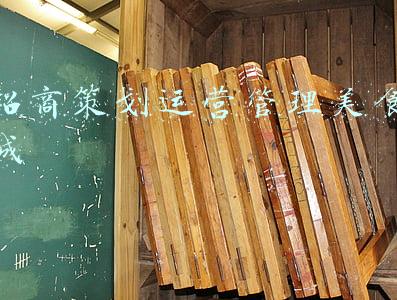 招商策划运营管理美食
城